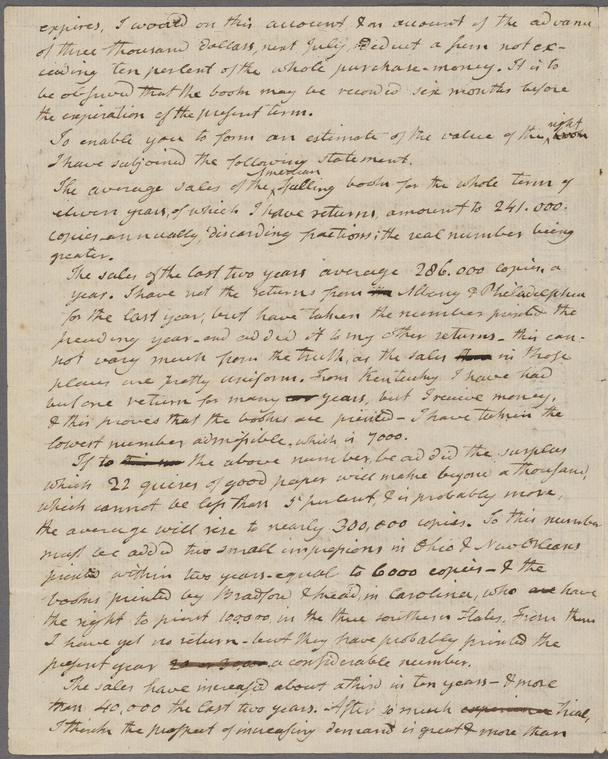 expires, I would on this account & on account of the advance
of three thousand dollars, next July, deduct a sum not ex-
ceeding ten percent of the whole purchase-money. It is to
be observed that the book may be recorded six months before
the expiration of the present term.
To enable you to form an estimate of the value of the right
I have subjoined the following statement.
The average sales of the American Spelling book for the whole term of
eleven years, of which I have returns, amount to 241.000.
copies annually, discarding fractions; the real number being
greater.
The sales of the last two years average 286.000 copies a
year. I have not the returns from Albany & Philadelphia
for the last year; but have taken the number printed the
preceding year and added it to my other returns - this can-
not vary much from the truth, as the sales in those
places are pretty uniform. From Kentucky I have had
but one return for many years, but I receive money,
& this proves that the books are printed - I have taken the
lowest number admissible, which is 7000.
If to the above number, be added the surplus
which 22 quires of good paper will make beyond a thousand,
which cannot be less than 5 percent, & is probably more,
the average will rise to nearly 300,000 copies. To this number
must be added two small impressions in Ohio & New Orleans
printed within two years - equal to 6000 copies - & the
books printed by Bradford & Read, in Carolina, who have
the right to print 100000 in the three southern States. From them
I have yet no return - but they have probably printed the
present year a considerable number.
The sales have increased about a third in ten years - & more
than 40,000 the last two years. After so much trial,
I think the prospect of increasing demand is great & more than